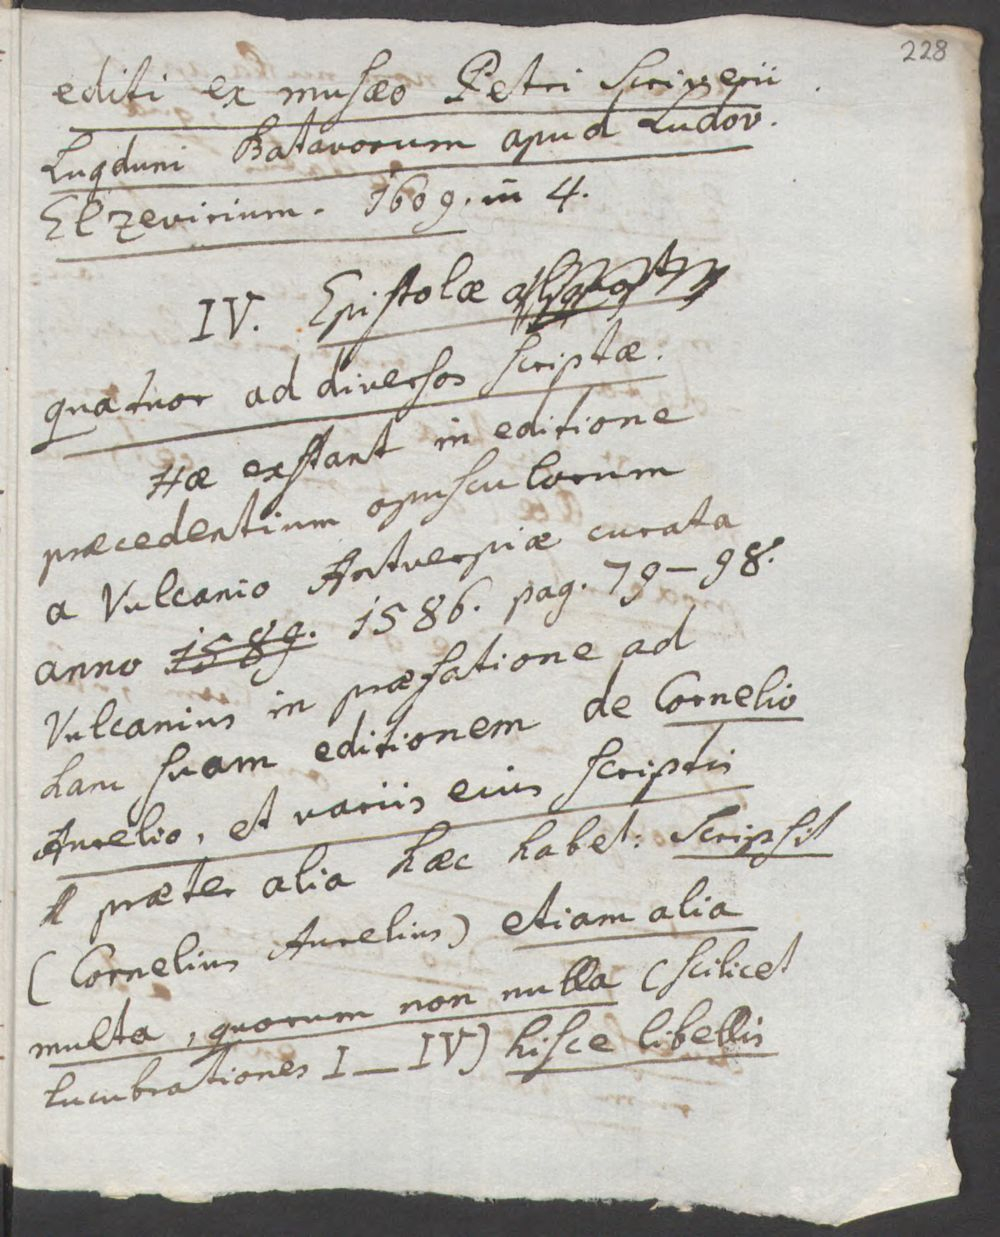 228
editi ex musæo Petri Scriverii
Lugduni Batavorum apud Ludov.
Elzevirium. 1609. in 4.
IV. Epistolæ
quatuor ad diversos scriptæ.
Hæ exstant in editione
præcedentium opusculorum
a Vulcanio Antverpiæ curata
anno 1589. 1586. pag. 79-98.
Vulcanius in præfatione ad
hanc suam editionem de Cornelio
Aurelio, et variis eius scriptis
præter alia hæc habet: Scripsit
(Cornelius Aurelius) etiam alia
multa, quorum non nulla (scilicet
lucubrationes I_IV) hisce libellis